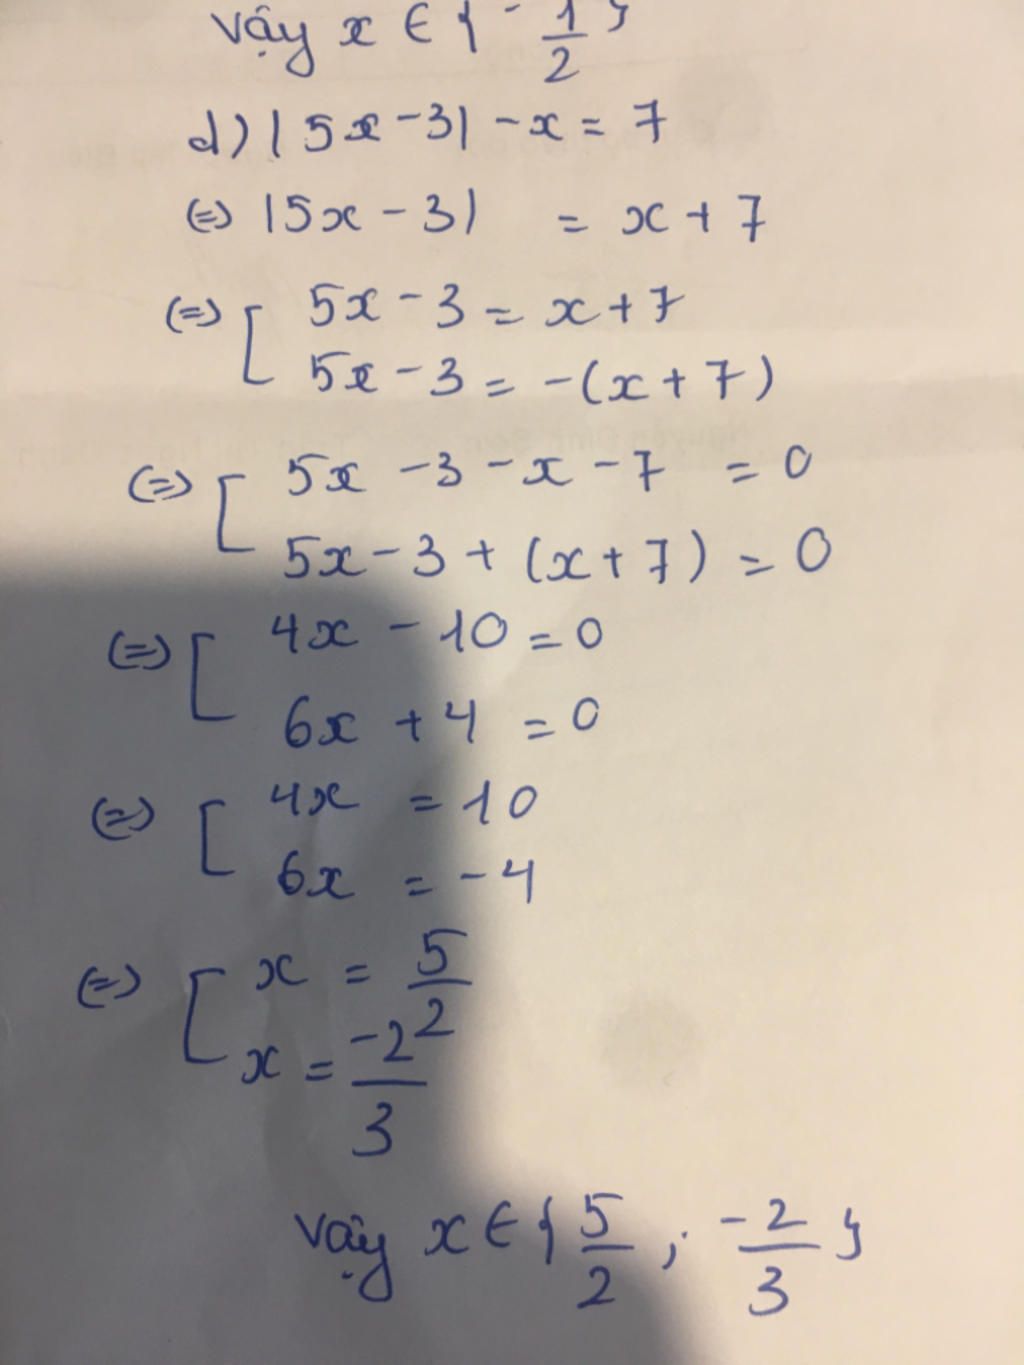 Vậy x ∈ { - 1/2 }
d) |5x - 3| - x = 7
(=) |5x - 3| = x + 7
(=) [ 5x - 3 = x + 7
5x - 3 = -(x + 7)
(=) [ 5x - 3 - x - 7 = 0
5x - 3 + (x + 7) = 0
(=) [ 4x - 10 = 0
6x + 4 = 0
(=) [ 4x = 10
6x = -4
(=) [ x = 5/2
x = -2/3
Vậy x ∈ { 5/2 ; -2/3 }